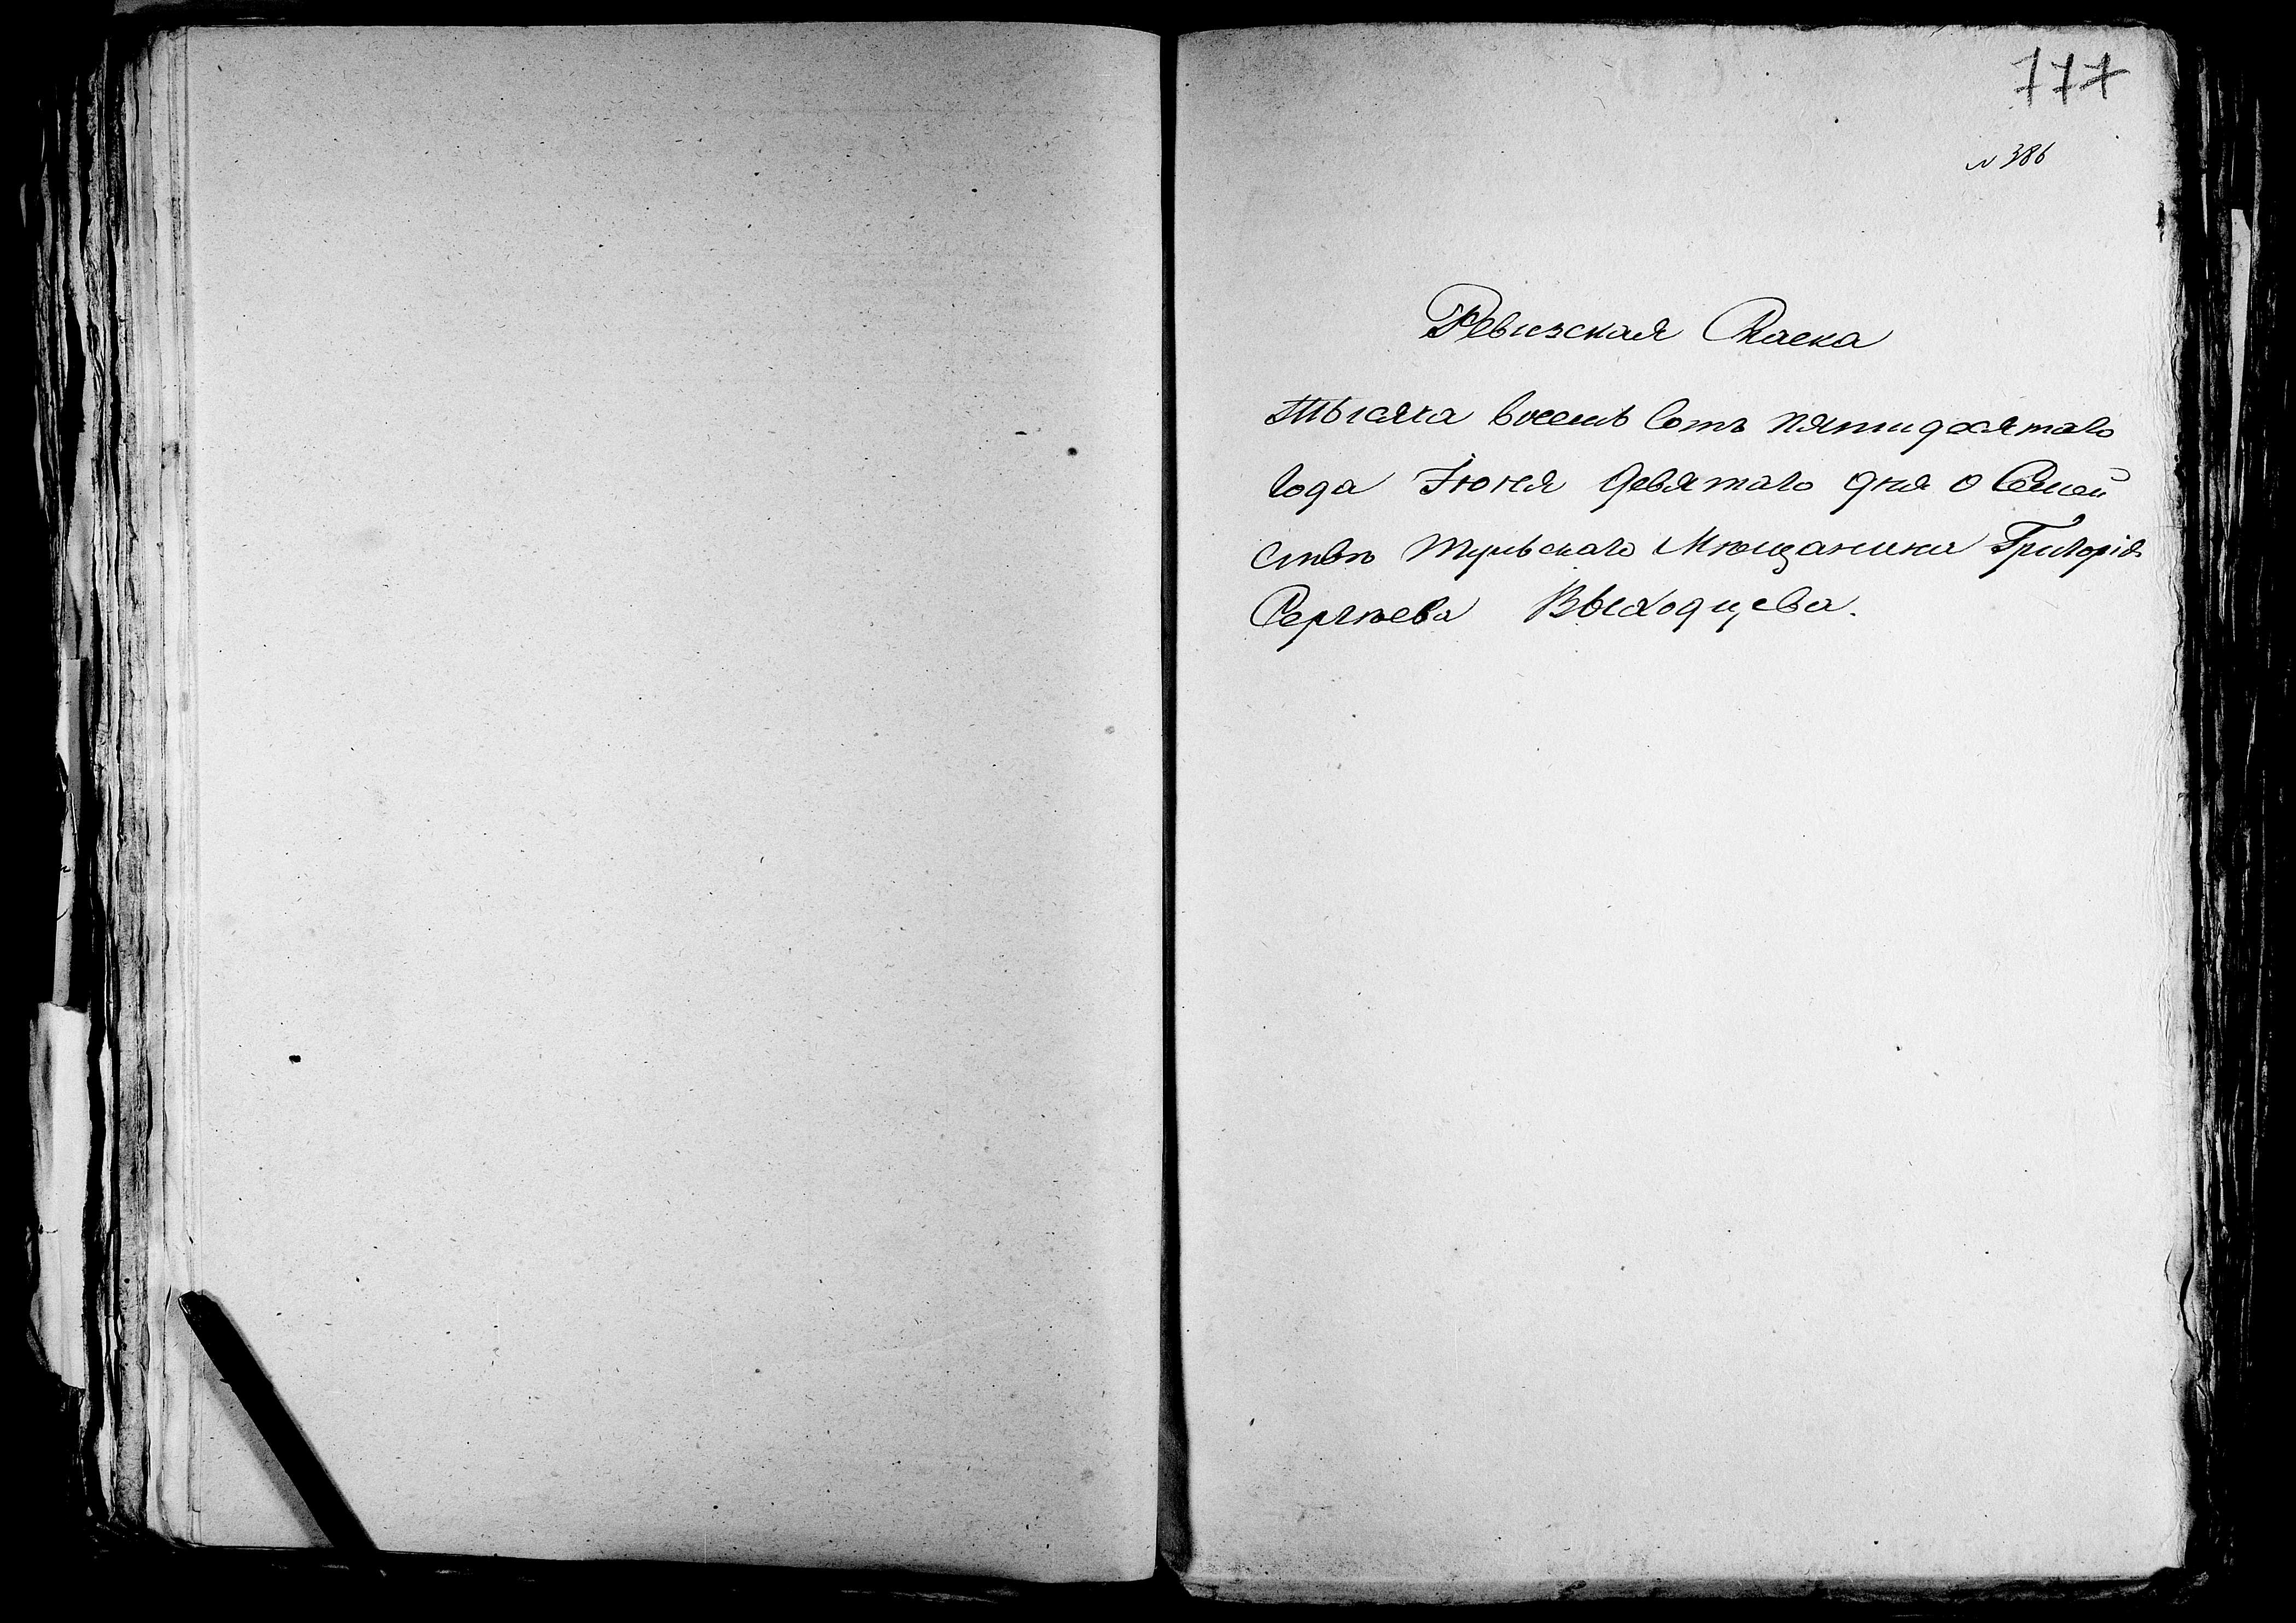 777
N 386
Ревизская Скаска
Тысяча восемь сотъ пятидесятаго
года Іюня девятаго дня о Семей
ствѣ Тульскаго Мѣщанина Григорія
Сергѣева Выходцева.